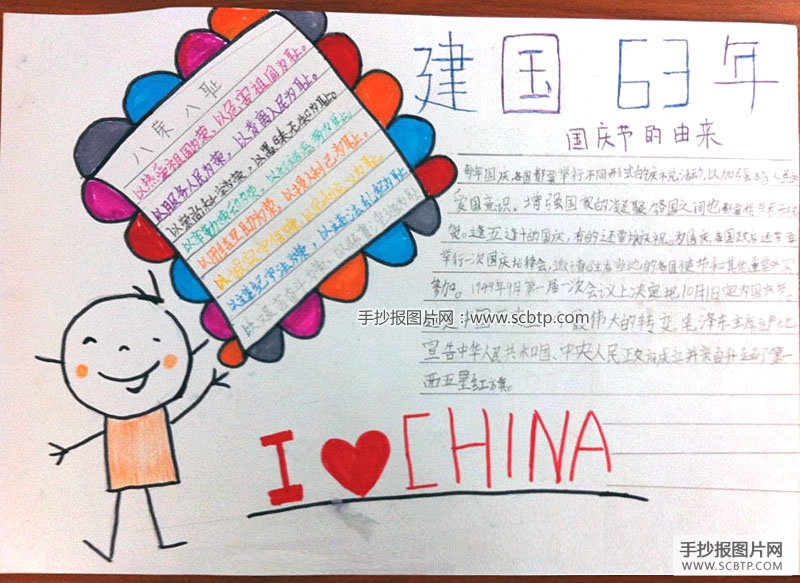 八荣八耻
以热爱祖国为荣，以危害祖国为耻。
以服务人民为荣，以背离人民为耻。
以崇尚科学为荣，以愚昧无知为耻。
以辛勤劳动为荣，以好逸恶劳为耻。
以团结互助为荣，以损人利己为耻。
以诚实守信为荣，
以遵纪守法为荣，以违法乱纪为耻
以艰苦奋斗为荣，
建国63年
国庆节的由来
每年国庆，各国都要举行不同形式的庆祝活动，以加强本国人民
爱国意识，增强国家的凝聚
逢五逢十的国庆，有的还要
举行一次国庆招待会，邀请驻在当地的各国使节和其他重要
参加。1949年9月第一届一次会议上决定把10月1日定为国庆节。
伟大的转变，毛泽东主席
宣告中华人民共和国、中央人民政府成立并亲自升起了第一
面五星红旗。
手抄报图片网：www.scbtp.com
I CHINA
手抄报图片网
WWW.SCBTP.COM